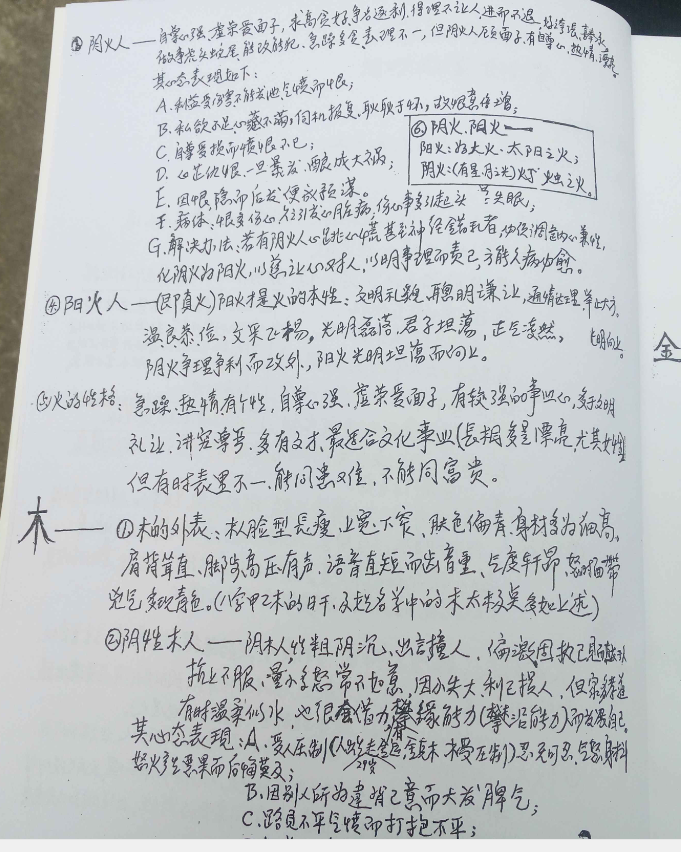 ③阴火人——自尊心强,虚荣爱面子,求高贪好,争名逐利,得理不让人,进而不退,好夸张,喜奉承,
做事虎头蛇尾,急躁多贪,表理不一,但阴火人顾面子,有自尊心,热情,漂亮。
其心态表现如下:
A.利益受伤害不能发泄气愤而恨;
B.私欲不足心藏不满,伺机报复,耿耿于怀,
C.自尊受损而愤恨不已;
D.心足仇恨一旦暴发,酿成大祸;
E.因恨,隐而后发便放预谋。
F.病体:恨多伤心,往往引发心脏病,伤心事多引起头 失眠;
⑥阴火.阳火——
阳火:为大火.太阳之火;
阴火:(有星.月之光)灯.烛之火。
G.解决办法:若有阴火人心跳心慌甚至神经错乱者,
化阴火为阳火,以慈让心对人,以明事理而责己,方能久病而愈。
④阳火人——(即真火)阳火才是火的本性:文明礼貌,聪明谦让,通情达理,举止大方,
温良恭俭,文采飞扬,光明磊落,君子坦荡,正气凌然,
阴火争理争利而改外,阳火光明坦荡而向上。
金
⑤火的性格:急躁.热情,有个性,自尊心强.虚荣爱面子,有较强的事业心,多文明
礼让.讲究尊卑.多有文才,最适合文化事业(长相多是漂亮,尤其女性)
但有时表里不一,能同患难,不能同富贵。
木——①木的外表:木人脸型長瘦,上宽下窄,肤色偏青,身材多为细高,
肩背耸直,脚步高压有声,语音直短而齿音重,气度轩昂,怒时面带
煞气多现青色。(八字甲乙木的日干,及起名学中的木太极莫多如上述)
②阴性木人——阴木人性粗阴沉,出言撞人,偏激固执己见,
抗上不服,量小多怒常不如意,因小失大,利己损人,但
有时温柔似水,也很会借力攀缘能力(攀沿能力)而发展自己。
其心态表现:A.受人压制(金克木,木受压制)忍无可忍,
怒火生恶果而后悔莫及;
B.因别人所为违背己意而大发脾气;
C.路见不平气愤而打抱不平;